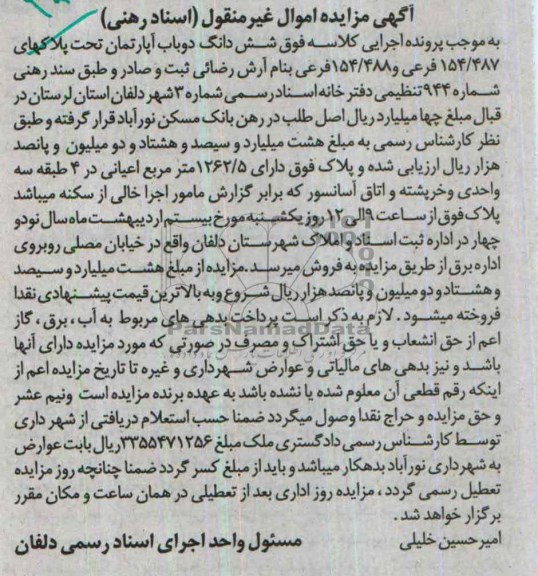 آگهی مزایده اموال غیرمنقول (اسناد رهنی)
به موجب پرونده اجرایی کلاسه فوق شش دانگ دوباب آپارتمان تحت پلاکهای
۱۵۴/۴۸۷ فرعی و ۱۵۴/۴۸۸فرعی بنام آرش رضائی ثبت و صادر و طبق سند رهنی
شماره ۹۴۴ تنظیمی دفتر خانه اسناد رسمی شماره ۳ شهر دلفان استان لرستان در
قبال مبلغ چها میلیارد ریال اصل طلب در رهن بانک مسکن نورآباد قرار گرفته و طبق
نظر کارشناس رسمی به مبلغ هشت میلیارد و سیصد و هشتاد و دو میلیون و پانصد
هزار ریال ارزیابی شده و پلاک فوق دارای ۱۲۶۲/۵متر مربع اعیانی در ۴ طبقه سه
واحدی وخرپشته و اتاق آسانسور که برابر گزارش مامور اجرا خالی از سکنه میباشد
پلاک فوق از ساعت ۹الی ۱۲ روز یکشنبه مورخ بیستم اردیبهشت ماه سال نودو
چهار در اداره ثبت اسناد و املاک شهرستان دلفان واقع در خیابان مصلی روبروی
اداره برق از طریق مزایده به فروش میرسد.مزایده از مبلغ هشت میلیارد و سیصد
و هشتاد و دو میلیون و پانصد هزار ریال شروع و به بالاترین قیمت پیشنهادی نقدا
فروخته میشود . لازم به ذکر است پرداخت بدهی های مربوط به آب ، برق ، گاز
اعم از حق انشعاب و یا حق اشتراک و مصرف در صورتی که مورد مزایده دارای آنها
باشد و نیز بدهی های مالیاتی و عوارض شهرداری و غیره تا تاریخ مزایده اعم از
اینکه رقم قطعی آن معلوم شده یا نشده باشد به عهده برنده مزایده است ونیم عشر
و حق مزایده و حراج نقدا وصول میگردد ضمنا حسب استعلام دریافتی از شهر داری
توسط کارشناس رسمی دادگستری ملک مبلغ ۳۳۵۵۴۷۱۲۵۶ریال بابت عوارض
به شهرداری نورآباد بدهکار میباشد و باید از مبلغ کسر گردد ضمنا چنانچه روز مزایده
تعطیل رسمی گردد ، مزایده روز اداری بعد از تعطیلی در همان ساعت و مکان مقرر
برگزار خواهد شد .
امیرحسین خلیلی مسئول واحد اجرای اسناد رسمی دلفان
ParsNamadData